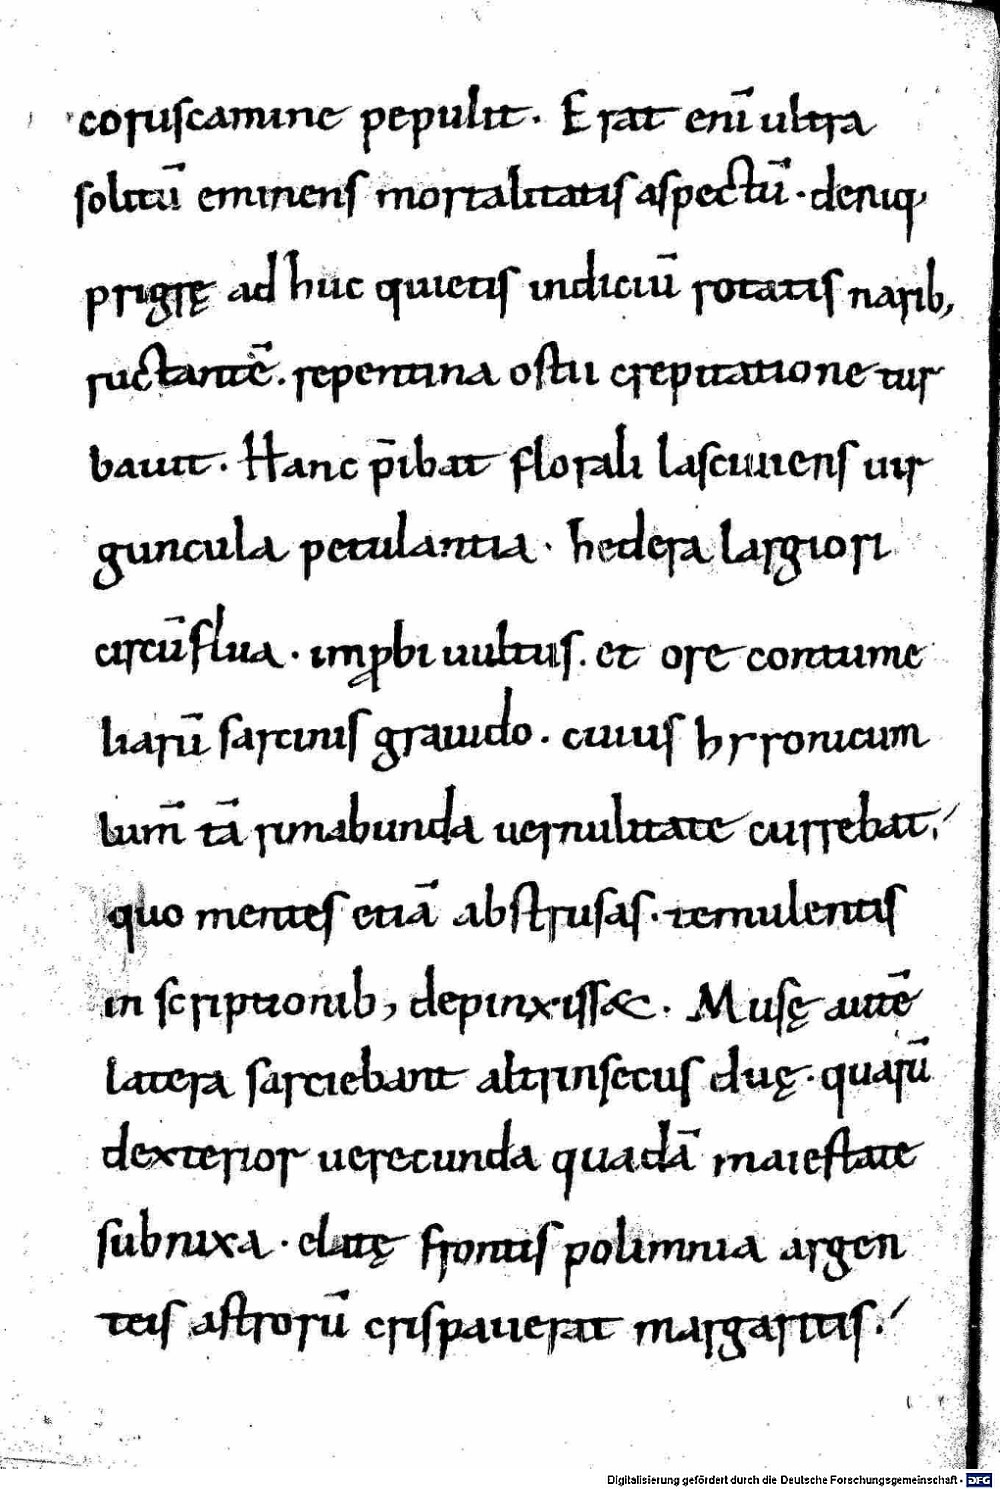 coruscamine pepulit. Erat enī ultra
solitū eminens mortalitatis aspectū. deniq;
prigrę ad huc quietis indiciū rotatis narib;
ructantē. repentina ostii crepitatione tur
bauit. Hanc p̄ibat florali lasciuiens uir
guncula petulantia. hedera largiori
circūflua. imꝓbi uultus. et ore contume
liarū sarcinis grauido. cuius hyronicum
lum̄ tā rimabunda uernulitate currebat.
quo mentes etiā abstrusas. temulentis
in scriptionib; depinxiss&. Musę autē
latera sarciebant altrinsecus duę. quarū
dexterior uerecunda quadā maiestate
subnixa. elatę frontis polimnia argen
teis astrorū crispauerat margaritis.
Digitalisierung gefördert durch die Deutsche Forschungsgemeinschaft - DFG